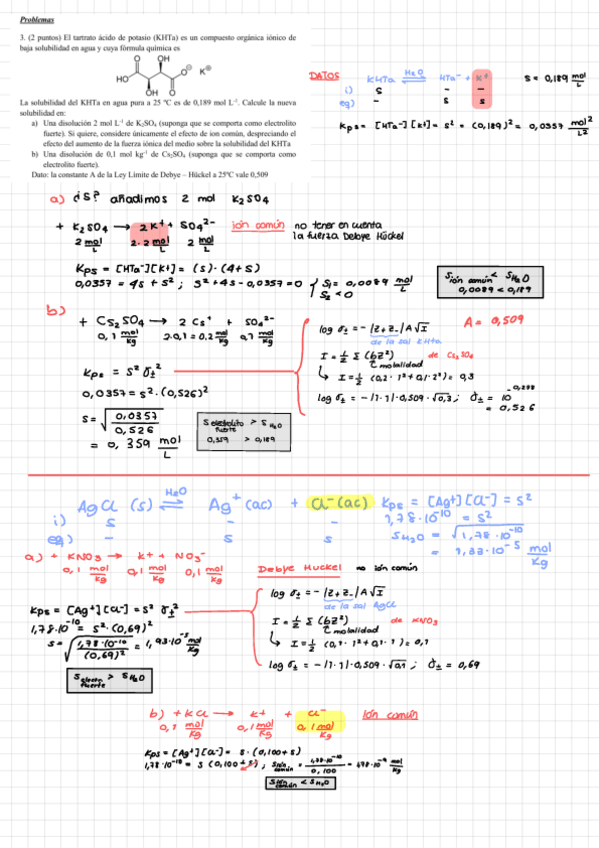 Problemas
3. (2 puntos) El tartrato ácido de potasio (KHTa) es un compuesto orgánica iónico de
baja solubilidad en agua y cuya fórmula química es
O OH
HO O⊖ K⊕
OH O
La solubilidad del KHTa en agua pura a 25 ºC es de 0,189 mol L⁻¹. Calcule la nueva
solubilidad en:
a) Una disolución 2 mol L⁻¹ de K₂SO₄ (suponga que se comporta como electrolito
fuerte). Si quiere, considere únicamente el efecto de ion común, despreciando el
efecto del aumento de la fuerza iónica del medio sobre la solubilidad del KHTa
b) Una disolución de 0,1 mol kg⁻¹ de Cs₂SO₄ (suponga que se comporta como
electrolito fuerte).
Dato: la constante A de la Ley Límite de Debye – Hückel a 25ºC vale 0,509
DATOS
KHTa ⇌ H₂O HTa⁻ + K⁺ s = 0,189 mol/L
i) s - -
eq) - s s
Kps = [HTa⁻][K⁺] = s² = (0,189)² = 0,0357 mol²/L²
a) ¿S? añadimos 2 mol K₂SO₄
+ K₂SO₄ → 2K⁺ + SO₄²⁻ ión común no tener en cuenta
la fuerza Debye Hückel
2 mol/L 2·2 mol/L 2 mol/L
Kps = [HTa⁻][K⁺] = (s)·(4+s)
0,0357 = 4s + s² ; s² + 4s - 0,0357 = 0 { S₁ = 0,0089 mol/L
S₂ < 0
Sión común < SH₂O
0,0089 < 0,189
b)
+ Cs₂SO₄ → 2 Cs⁺ + SO₄²⁻
0,1 mol/Kg 2·0,1 = 0,2 mol/Kg 0,1 mol/Kg
Kps = s² γ±²
0,0357 = s²·(0,526)²
s = √(0,0357/0,526)
= 0,359 mol/L
Selectrolito fuerte > SH₂O
0,359 > 0,189
log γ± = -|Z+Z-|A√I A = 0,509
de la sal KHTa
I = ½ Σ (bz²) de Cs₂SO₄
molalidad
↳ I = ½ (0,2·1² + 0,1·2²) = 0,3
log γ± = -|1·1|·0,509·√0,3 ; γ± = 10^-0,278
= 0,526
AgCl (s) ⇌ H₂O Ag⁺(ac) + Cl⁻(ac) Kps = [Ag⁺][Cl⁻] = s²
i) s - - 1,78·10⁻¹⁰ = s²
eq) - s s SH₂O = √(1,78·10⁻¹⁰)
= 1,33·10⁻⁵ mol/Kg
a) + KNO₃ → K⁺ + NO₃⁻
0,1 mol/Kg 0,1 mol/Kg 0,1 mol/Kg
Debye Huckel no ión común
Kps = [Ag⁺][Cl⁻] = s² γ±²
1,78·10⁻¹⁰ = s²·(0,69)²
s = √(1,78·10⁻¹⁰/(0,69)²) = 1,93·10⁻⁵ mol/Kg
Selectro fuerte > SH₂O
log γ± = -|Z+Z-|A√I
de la sal AgCl
I = ½ Σ (bz²) de KNO₃
molalidad
↳ I = ½ (0,1·1² + 0,1·1) = 0,1
log γ± = -|1·1|·0,509·√0,1 ; γ± = 0,69
b) + KCl → K⁺ + Cl⁻ Ión común
0,1 mol/Kg 0,1 mol/Kg 0,1 mol/Kg
Kps = [Ag⁺][Cl⁻] = s·(0,100+s)
1,78·10⁻¹⁰ = s (0,100+s) ; Sión común = 1,78·10⁻¹⁰/0,100 = 1,78·10⁻⁹ mol/Kg
Sión común < SH₂O